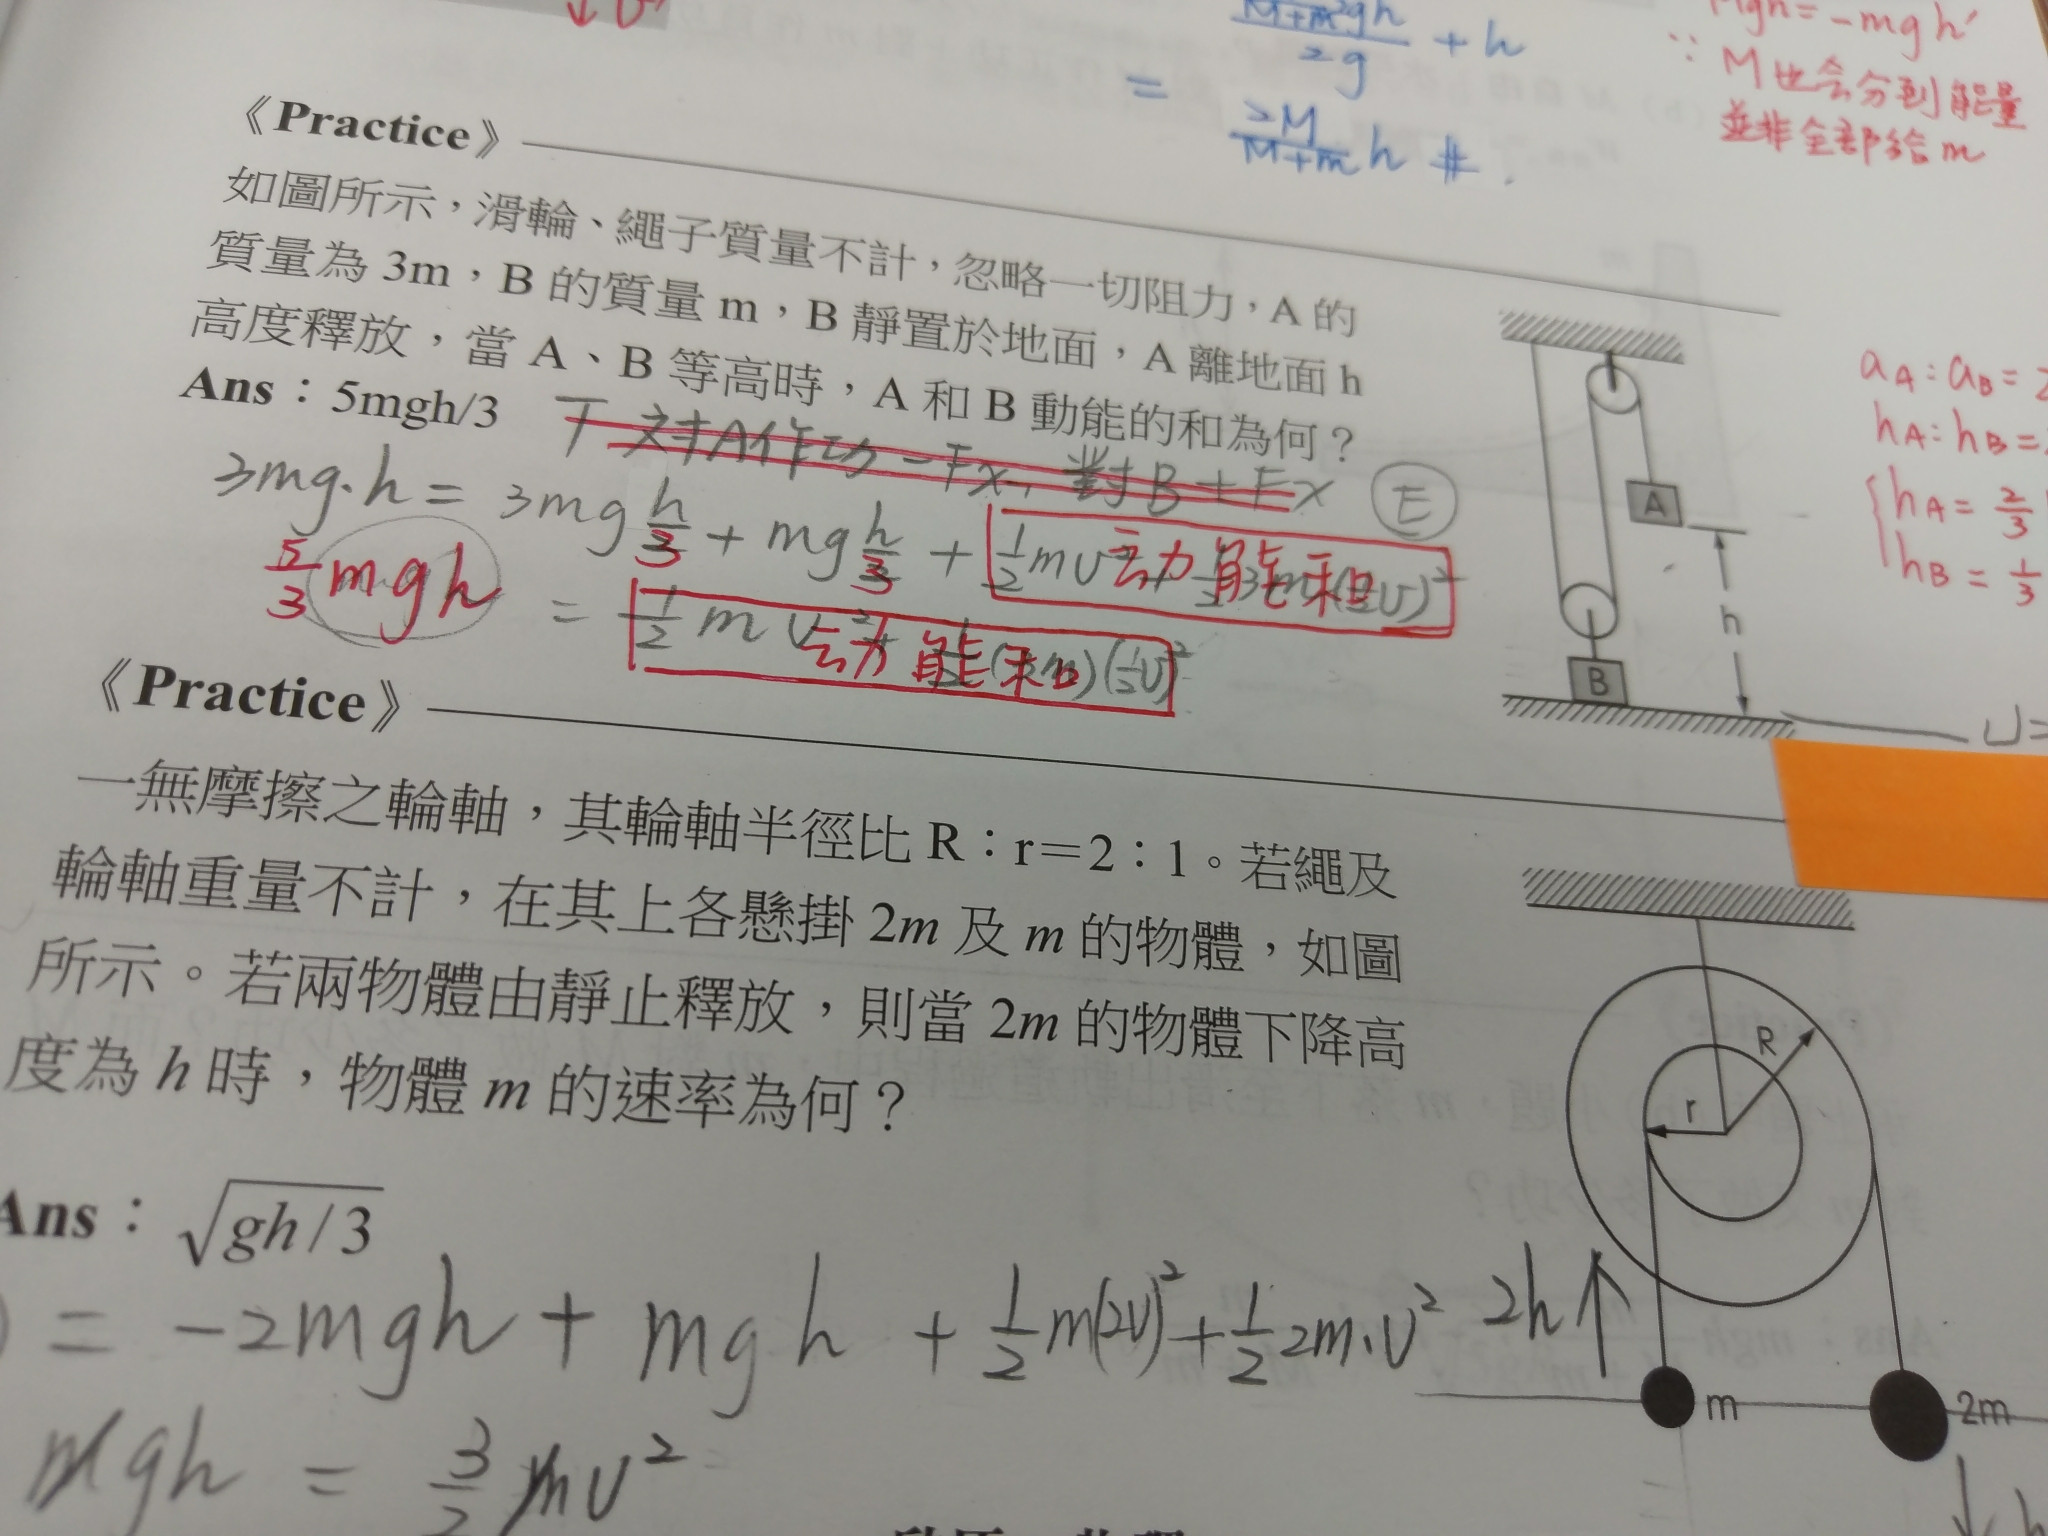 M+m 2gh
2g
+ h
=
2M
M+m
h #
Mgh = -mgh'
∵ M也会分到能量
並非全部給m
《Practice》
如圖所示，滑輪、繩子質量不計，忽略一切阻力，A 的
質量為 3m，B 的質量 m，B 靜置於地面，A 離地面 h
高度釋放，當 A、B 等高時，A 和 B 動能的和為何？
Ans：5mgh/3
T 对A作功 -Fx, 對B+Fx
E
3mg·h = 3mg h/3 + mg h/3 + 动能和
5/3 mgh
= 动能和
A
B
h
aA : aB = 2
hA : hB =
hA = 2/3
hB = 1/3
U=
《Practice》
一無摩擦之輪軸，其輪軸半徑比 R：r＝2：1。若繩及
輪軸重量不計，在其上各懸掛 2m 及 m 的物體，如圖
所示。若兩物體由靜止釋放，則當 2m 的物體下降高
度為 h 時，物體 m 的速率為何？
R
r
Ans：√gh/3
= -2mgh + mgh + 1/2 m(2v)² + 1/2 2m·v²
2h↑
m
2m
↓h
mgh = 3/2 mv²